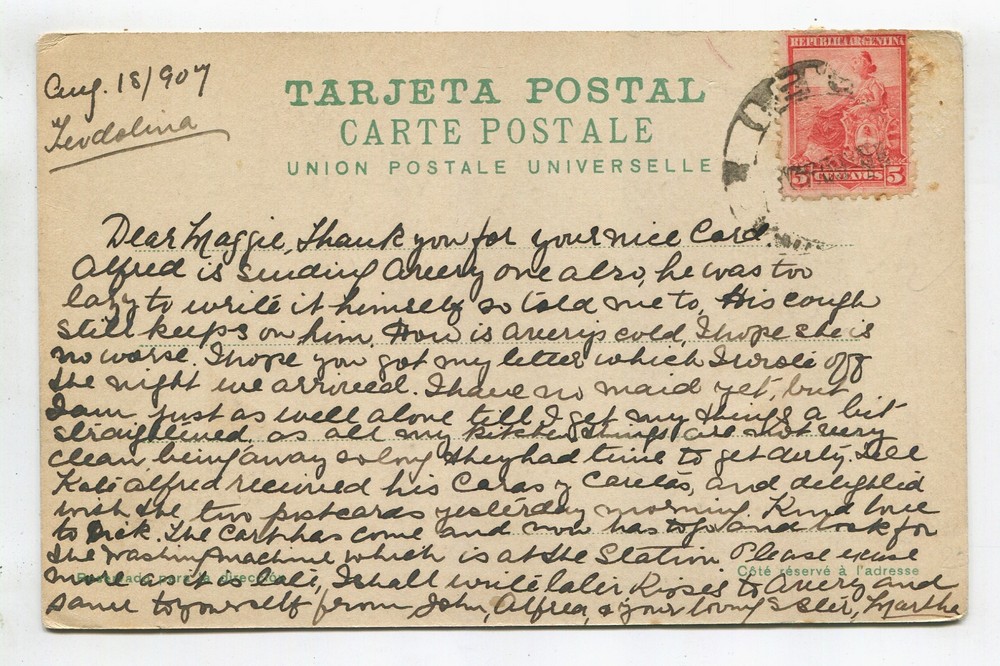 Aug. 18/907
Teodolina
TARJETA POSTAL
CARTE POSTALE
UNION POSTALE UNIVERSELLE
REPUBLICA ARGENTINA
5 CENTAVOS 5
Dear Maggie, Thank you for your nice Card.
Alfred is sending Avery one also, he was too
lazy to write it himself so told me to. His cough
still keeps on him. How is Averys cold, I hope she is
no worse. I hope you got my letter which I wrote off
the night we arrived. I have no maid yet, but
I am just as well alone till I get my things a bit
straightened, as all my kitchen things are not very
clean, being away so long they had time to get dirty. Tell
Kate Alfred received his Caras y Caretas, and delighted
with the two postcards yesterday morning. Kind love
to Dick. The Cart has come and now has to go and look for
the washing machine which is at the Station. Please excuse
Reservado para la dirección
Côté réservé à l'adresse
more as it is, I shall write later. Kisses to Avery and
same to yourself from John, Alfred, & your loving Sister, Martha